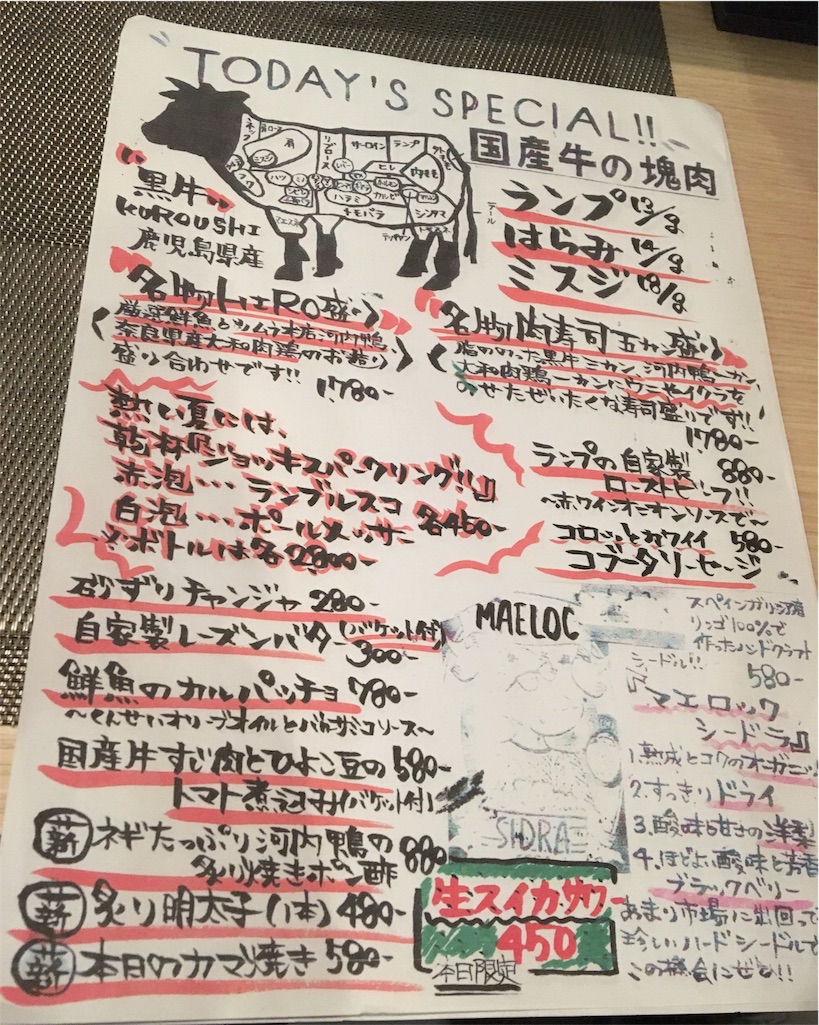 TODAY'S SPECIAL!!
国産牛の塊肉
"黒牛"
KUROUSHI
鹿児島県産
ネック
肩ロース
肩
ミスジ
リブロース
サーロイン
ランプ
ヒレ
内モモ
ハツ
レバー
ハラミ
カルビ
トモバラ
シンタマ
テール
ランプ 13/g
はらみ 14/g
ミスジ 18/g
"名物HERO盛り"
厳選鮮魚とツムラ本店河内鴨
奈良県産大和肉鶏のお造り
盛り合わせです!!
1780-
"名物肉寿司五カン盛り"
脂ののった黒牛ミカン、河内鴨一カン、
大和肉鶏一カンにウニやイクラを
のせたぜいたくな寿司盛りです!!
1780-
熱い夏には、
乾杯『ジョッキスパークリング!!』
赤泡…ランブルスコ
白泡…ポールメッサー 各450-
ボトルは各2800-
ランプの自家製 880-
ローストビーフ!!
〜赤ワインオニオンソースで〜
コロッとカワイイ 580-
コブータソーセージ
砂ずりチャンジャ 280-
自家製レーズンバター(バケット付)
300-
鮮魚のカルパッチョ 780-
〜くんせいオリーブオイルとバルサミコソース〜
国産牛すじ肉とひよこ豆の 580-
トマト煮込み(バケット付)
薪 ネギたっぷり河内鴨の 880-
炙り焼きポン酢
薪 炙り明太子(1本) 480-
薪 本日のカマ焼き 580-
MAELOC
SIDRA
スペインガリシア産
リンゴ100%で
作ったハンドクラフト
シードル!!
580-
『マエロック
シードラ』
1.熟成とコクのオーガニック
2.すっきりドライ
3.酸味と甘さの洋梨
4.ほどよい酸味と芳香
ブラックベリー
あまり市場に出回って
珍しいハードシードルで
この機会にぜひ!!
生スイカサワー
450
本日限定